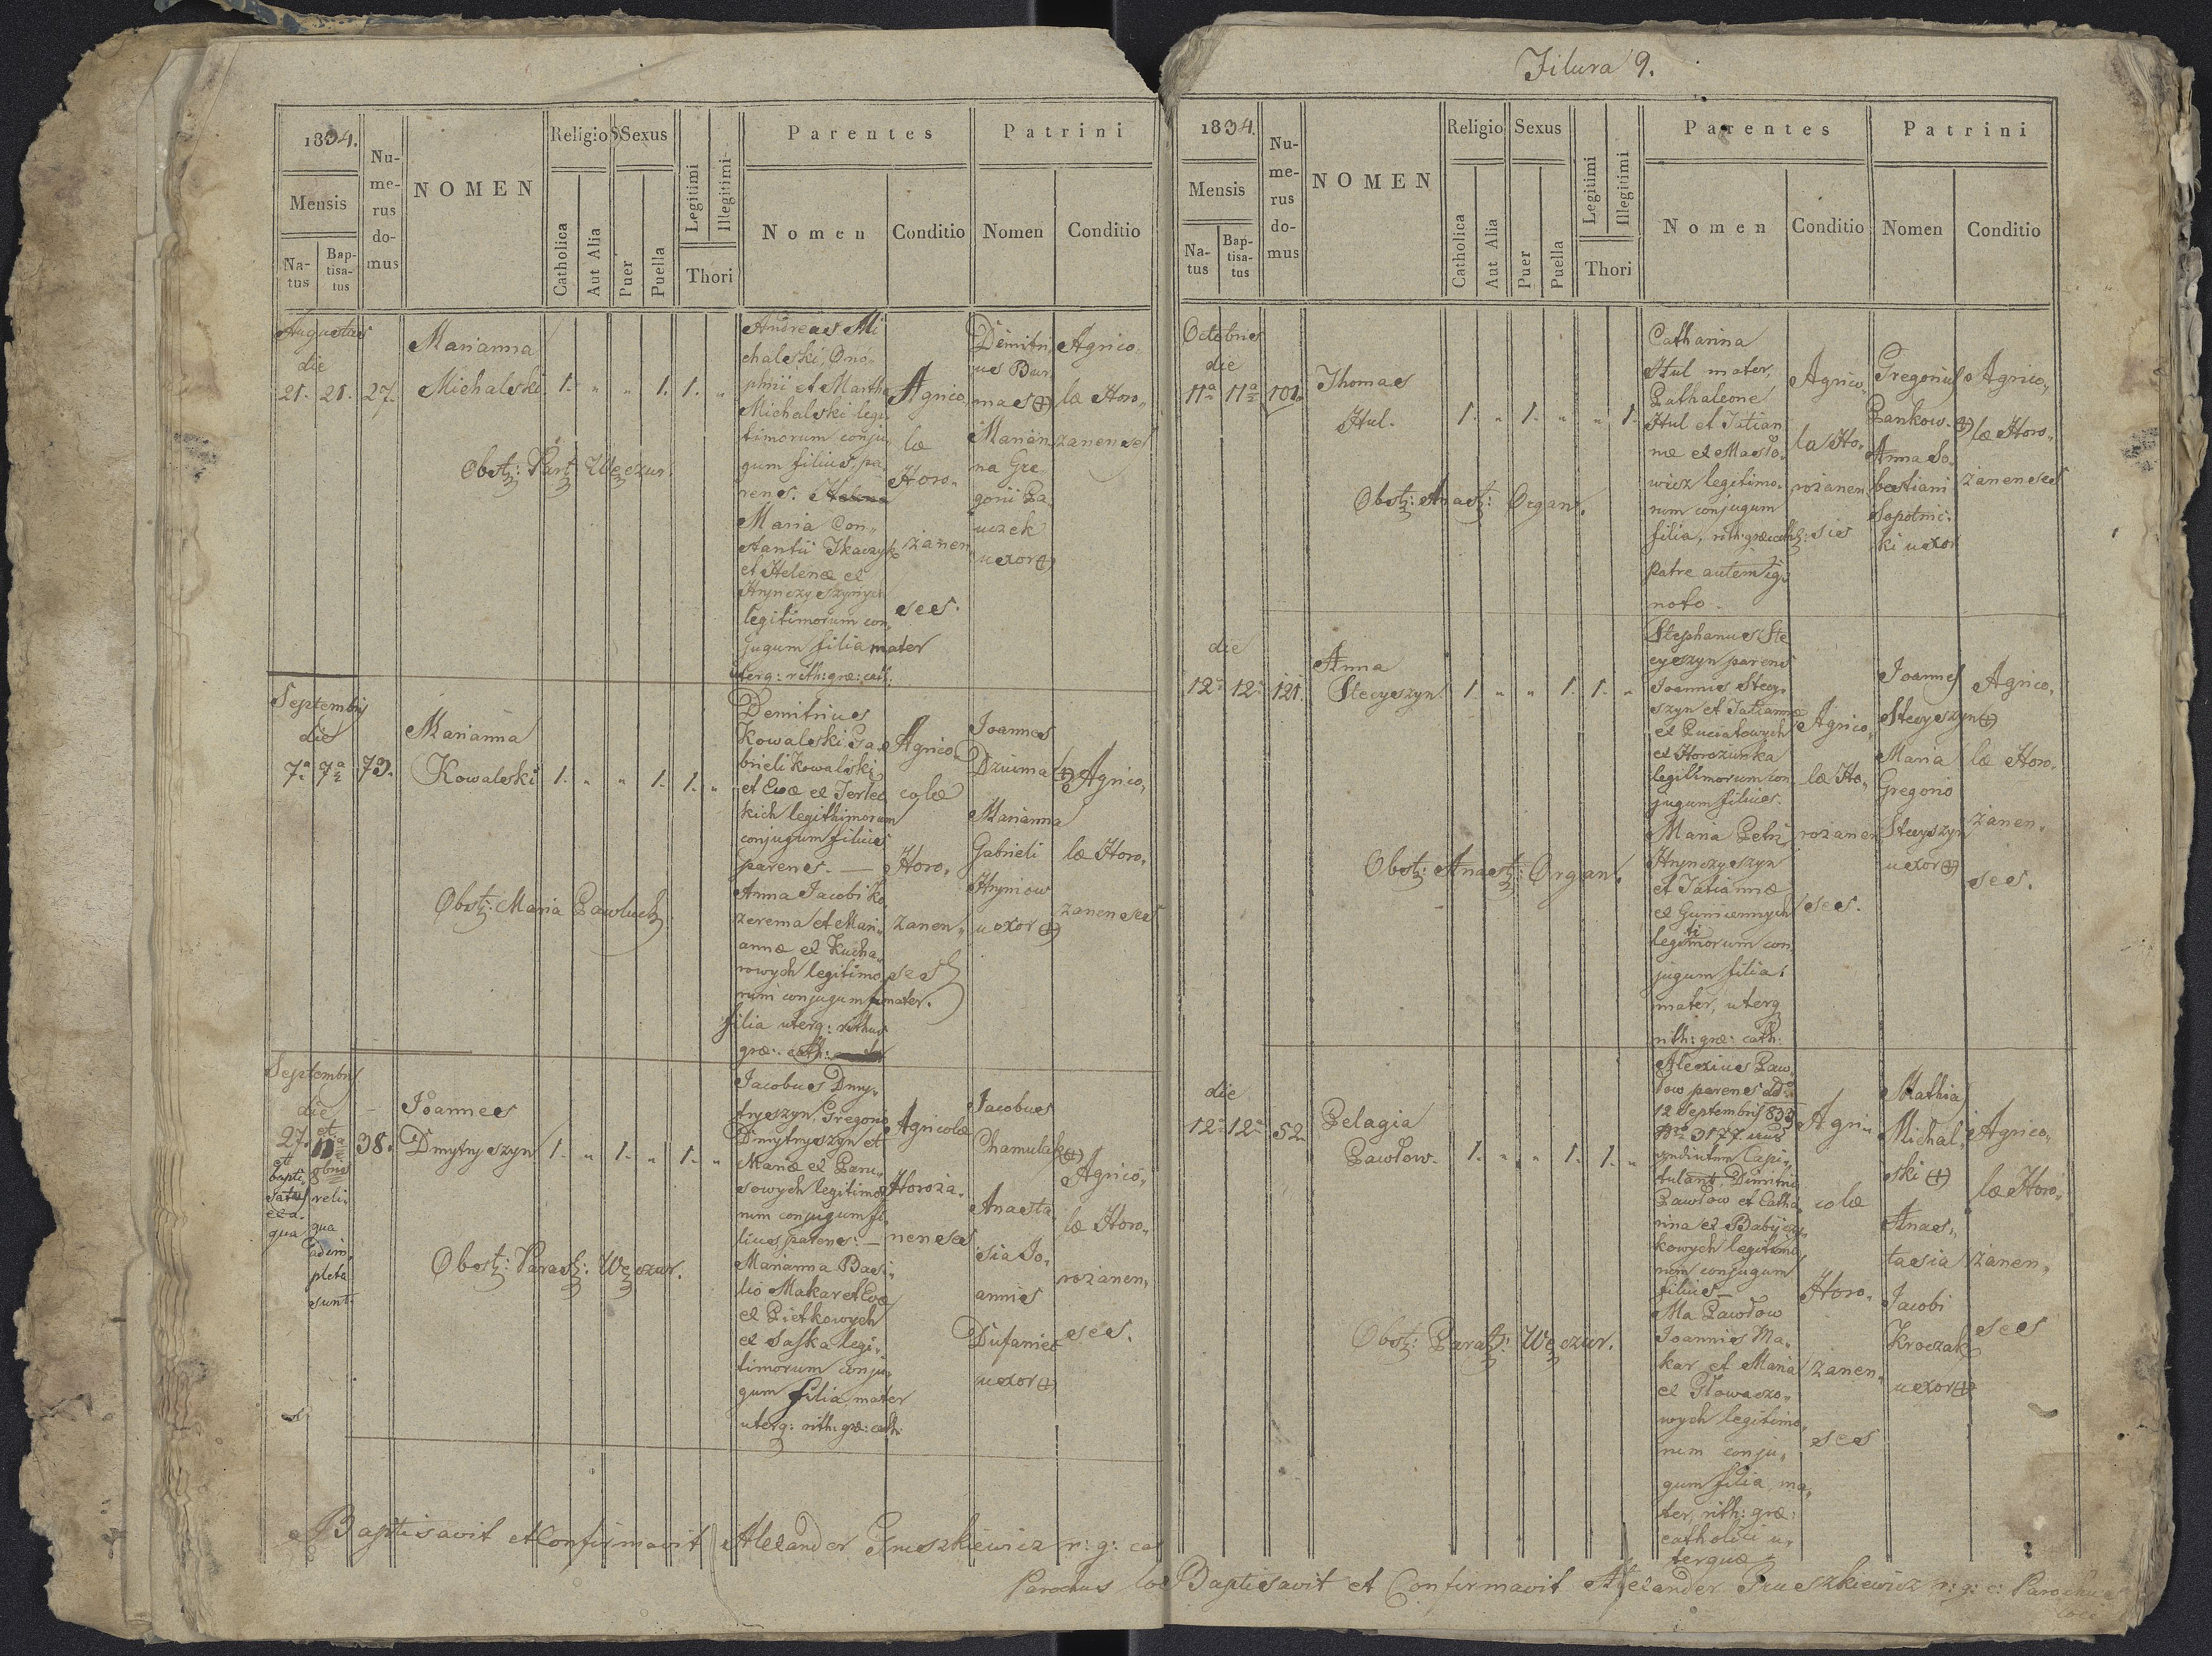 1834.
Mensis
Na-
tus
Bap-
tisa-
tus
Nu-
me-
rus
do-
mus
NOMEN
Religio
Catholica
Aut Alia
Sexus
Puer
Puella
Legitimi
Illegitimi
Thori
Parentes
Nomen
Conditio
Patrini
Nomen
Conditio
Augustus
die
21. 21. 27.
Marianna
Michalski 1. „ „ 1. 1. „
Obstz: Parst: Węczur.
Andreas Mi
chalski, Ono„
phrii et Martha
Michalski legi
timorum conju„
gum filius, pa„
rens. Helena
Maria Con„
stantii Tkaczyk
et Helenæ ex
Hrynczyszynych
legitimorum con„
jugum filia mater
uterq: rith: græ: cath:
Agrico
læ
Horo„
zanen„
ses.
Demitri
us Bur
mas (+)
Marian
na Gre„
gorii Za
uczek
uxor (+)
Agrico„
læ Horo„
zanenses
Septembris
die
7a 7a 73.
Marianna
Kowalski 1. „ „ 1. 1. „
Obstz: Maria Pawluch
Demitrius
Kowalski Ga„
brieli Kowalski
et Evæ ex Terlec
kich legithimorum
conjugum filius
parens. —
Anna Jacobi Ko
zerema et Mari„
annæ ex Kucha„
rowych legitimo„
rum conjugum mater.
filia uterq: rithus
græ: cath:
Agrico„
colæ
Horo„
zanen„
ses
Joannes
Dziuma (+)
Marianna
Gabrieli
Hryniow
uxor (+)
Agrico„
læ Horo„
zanenses
Septembris
die
27. et
38.
et
bapti„
satus
ea
qua
obris
reli„
qua
adim„
pleta
sunt.
Joannes
Dmytryszyn 1. „ 1. „ 1. „
Obstz: Parask: Węczur.
Jacobus Dmy„
tryszyn, Gregorio
Dmytryszyn et
Mariæ ex Paru„
sowych legitimo„
rum conjugum fi„
lius parens: —
Marianna Basi„
lio Makar et Evæ
ex Pietkowych
ex Saska legi„
timorum conju„
gum filia mater
uterq: rith: græ: cath:
Agricolæ
Horoża„
nenses
Jacobus
Chamulak (+)
Anasta„
sia Jo„
annies
Dufaniec
uxor (+)
Agrico„
læ Horo„
rożanen„
ses.
Baptisavit et Confirmavit Alexander Pruszkiewicz r: g: cat
Parochus loc
Filura 9.
1834.
Mensis
Na-
tus
Bap-
tisa-
tus
Nu-
me-
rus
do-
mus
NOMEN
Religio
Catholica
Aut Alia
Sexus
Puer
Puella
Legitimi
Illegitimi
Thori
Parentes
Nomen
Conditio
Patrini
Nomen
Conditio
Octobris
die
11a 11a 101.
Thomas
Hul. 1. „ 1. „ „ 1.
Obstz: Anast: Organ.
Catharina
Hul mater,
Pathaleone
Hul et Tatian
næ ex Masło„
wicz legitimo„
rum conjugum
filia, rith: græ: cath:
patre autem ig„
noto.
Agrico„
la Ho„
rożanen
sies
Gregorius
Pankow. (+)
Anna Se„
bastiani
Sopotnic„
ki uxor
Agrico„
læ Horo„
zanenses
die
12a 12a 121.
Anna
Stecyszyn 1. „ „ 1. 1. „
Obstz: Anastz: Organ.
Stephanus Ste
cyszyn parens
Joannis Stecy„
szyn et Tatiannæ
ex Puciatowych
ex Horożunka
legitimorum con
jugum filius.
Maria Petri
Hrynczyszyn
et Tatiannæ
ex Guniennych
legitimorum con„
jugum filia:
mater, uterq
rith: græ: cath:
Agrico„
læ Ho„
rożanen
ses.
Joannes
Stecyszyn (+)
Maria
Gregorio
Stecyszyn
uxor (+)
Agrico„
læ Horo„
zanen„
ses.
die
12a 12a 52.
Pelagia
Pawłow. 1. „ „ 1. 1. „
Obstz: Parask: Węczur.
Alexius Paw„
łow parens ddo
12 Septembris 833
Nro 3177
Capi„
tulant, Dimitrii
Pawłow et Catha
rina ex Babijczy„
kowych legitimo„
rum conjugum
filius —
Ma Pawłow
Joannis Ma„
kar et Maria
ex Głowaczo„
wych legitimo„
rum conju„
gum filia, ma„
ter, rith: græ:
catholici u„
terquæ
Agri„
colæ
Horo„
zanen„
ses
Mathia
Michal„
ski (+)
Anas„
tasia
Jacobi
Kroczak
uxor (+)
Agrico„
læ Horo„
zanen„
ses
Baptisavit et Confirmavit Alexander Pruszkiewicz r: g: c: Parochus
loci